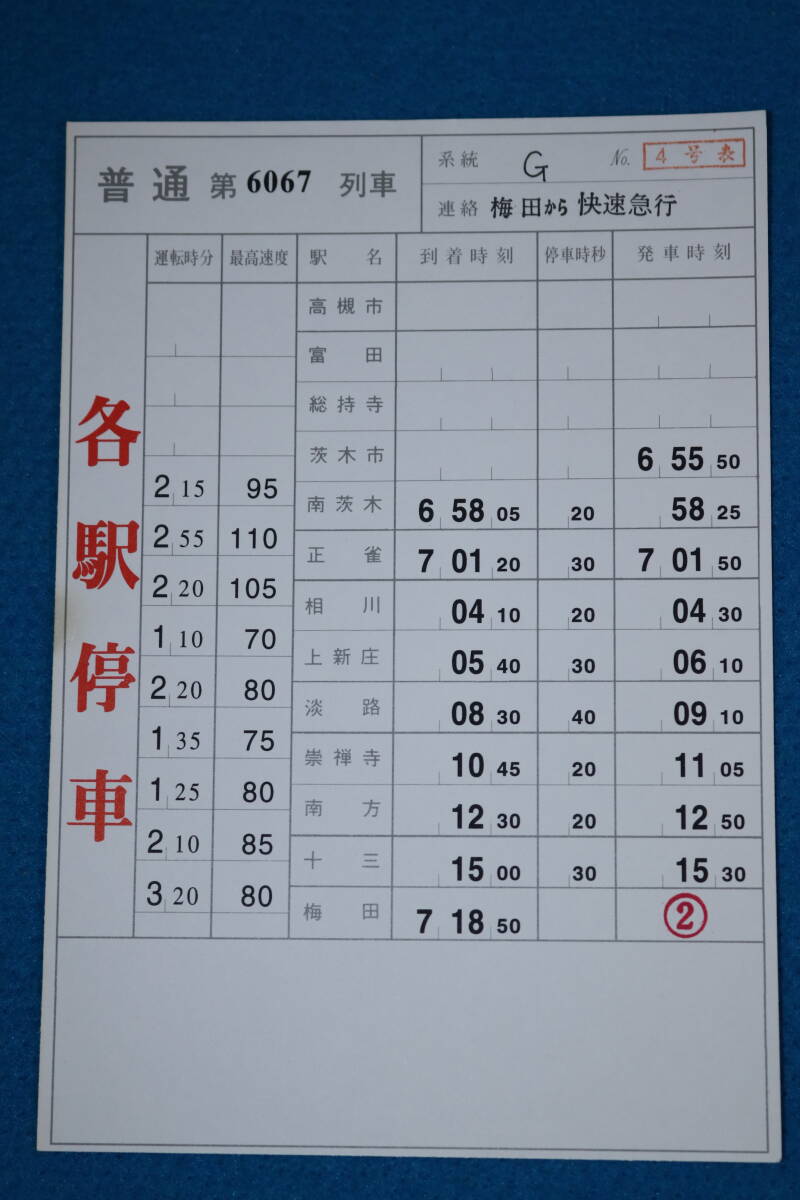 普通 第 6067 列車
系統 G No. 4号表
連絡 梅田から 快速急行
各駅停車
運転時分 最高速度 駅名 到着時刻 停車時秒 発車時刻
高槻市
富田
総持寺
茨木市 6 55 50
2 15 95
南茨木 6 58 05 20 58 25
2 55 110
正雀 7 01 20 30 7 01 50
2 20 105
相川 04 10 20 04 30
1 10 70
上新庄 05 40 30 06 10
2 20 80
淡路 08 30 40 09 10
1 35 75
崇禅寺 10 45 20 11 05
1 25 80
南方 12 30 20 12 50
2 10 85
十三 15 00 30 15 30
3 20 80
梅田 7 18 50 ②